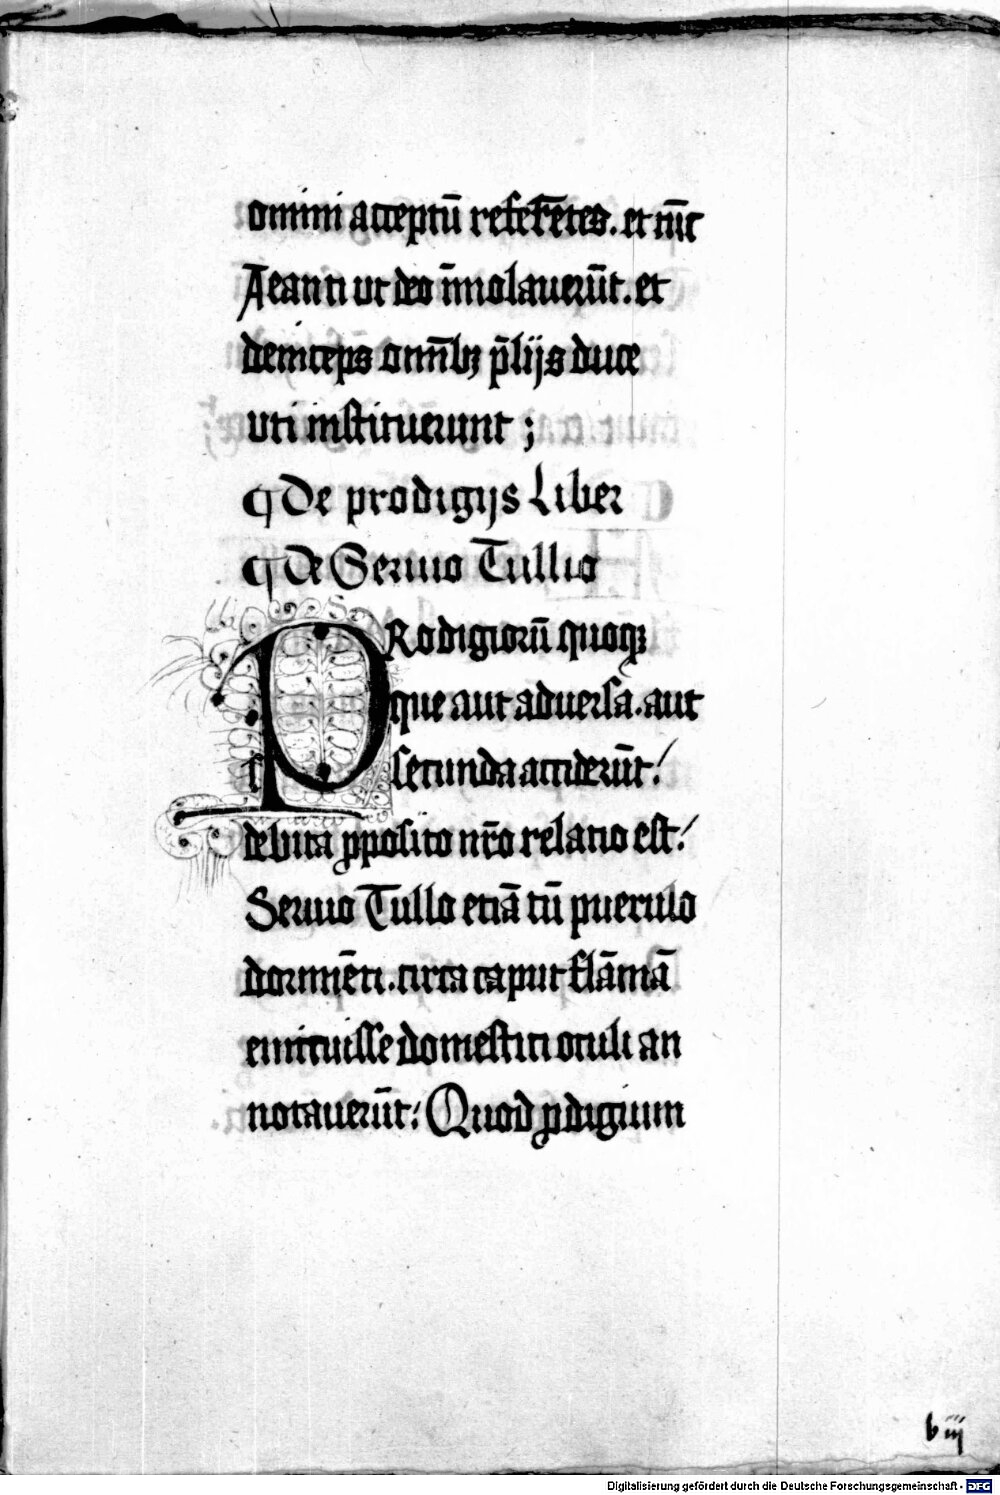 omini acceptū refere̅tes. et nūc
Aeanti ut deo i̅molaverūt. et
deinceps omnībꝫ p̄lijs duce
uti instituerunt ;
¶ De prodigijs Liber
¶ de Servio Tullio
PRodigiorū quoqꝫ
que aut adversa. aut
secunda acciderūt/
debita ꝓposito nr̄o relatio est/
Servio Tullo etiā tū puerulo
dormiēti. circa caput flāmā
emicuisse domestici oculi an
notaverūt: Quod ꝓdigium
b iij
Digitalisierung gefördert durch die Deutsche Forschungsgemeinschaft - DFG